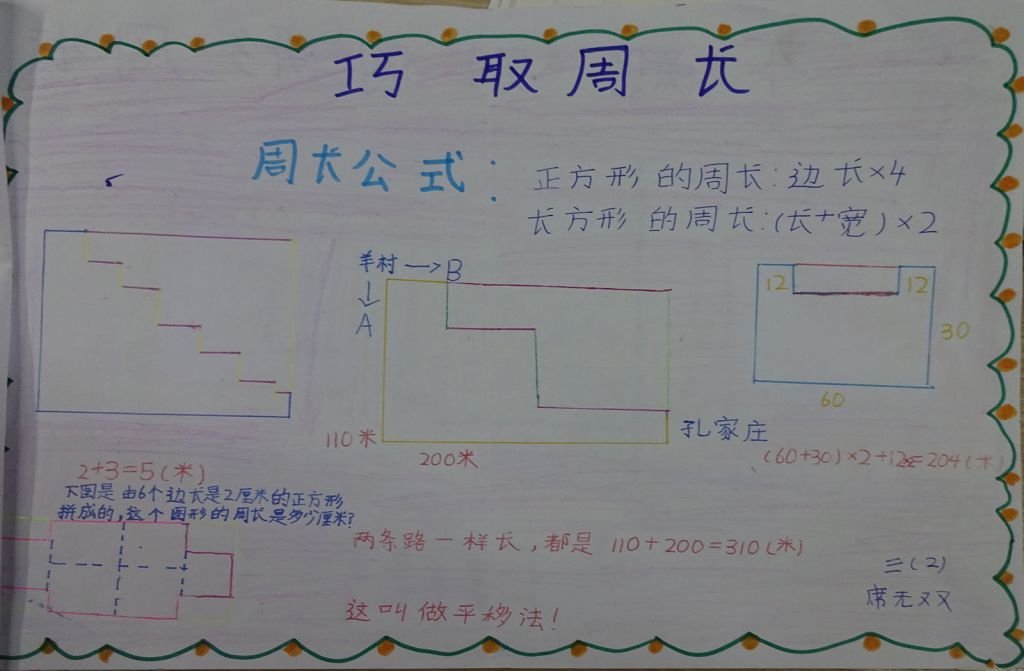 巧取周长
周长公式：
正方形的周长：边长×4
长方形的周长：(长+宽)×2
羊村→B
↓
A
12
12
30
60
110米
200米
孔家庄
(60+30)×2+12×2=204(米)
2+3=5(米)
下图是由6个边长是2厘米的正方形
拼成的，这个图形的周长是多少厘米？
两条路一样长，都是 110+200=310(米)
这叫做平移法！
三(2)
席无双